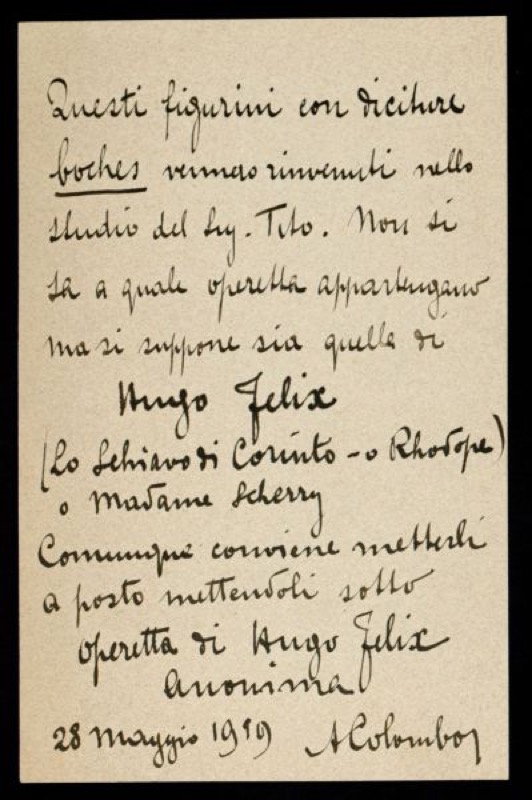 Questi figurini con diciture
boches vennero rinvenuti nello
studio del Sig. Tito. Non si
sa a quale operetta appartengano
ma si suppone sia quella di
Hugo Felix
(Lo Schiavo di Corinto - o Rhodope)
o Madame Scherry
Comunque conviene metterli
a posto mettendoli sotto
operetta di Hugo Felix
Anonima
28 Maggio 1919 AColombo